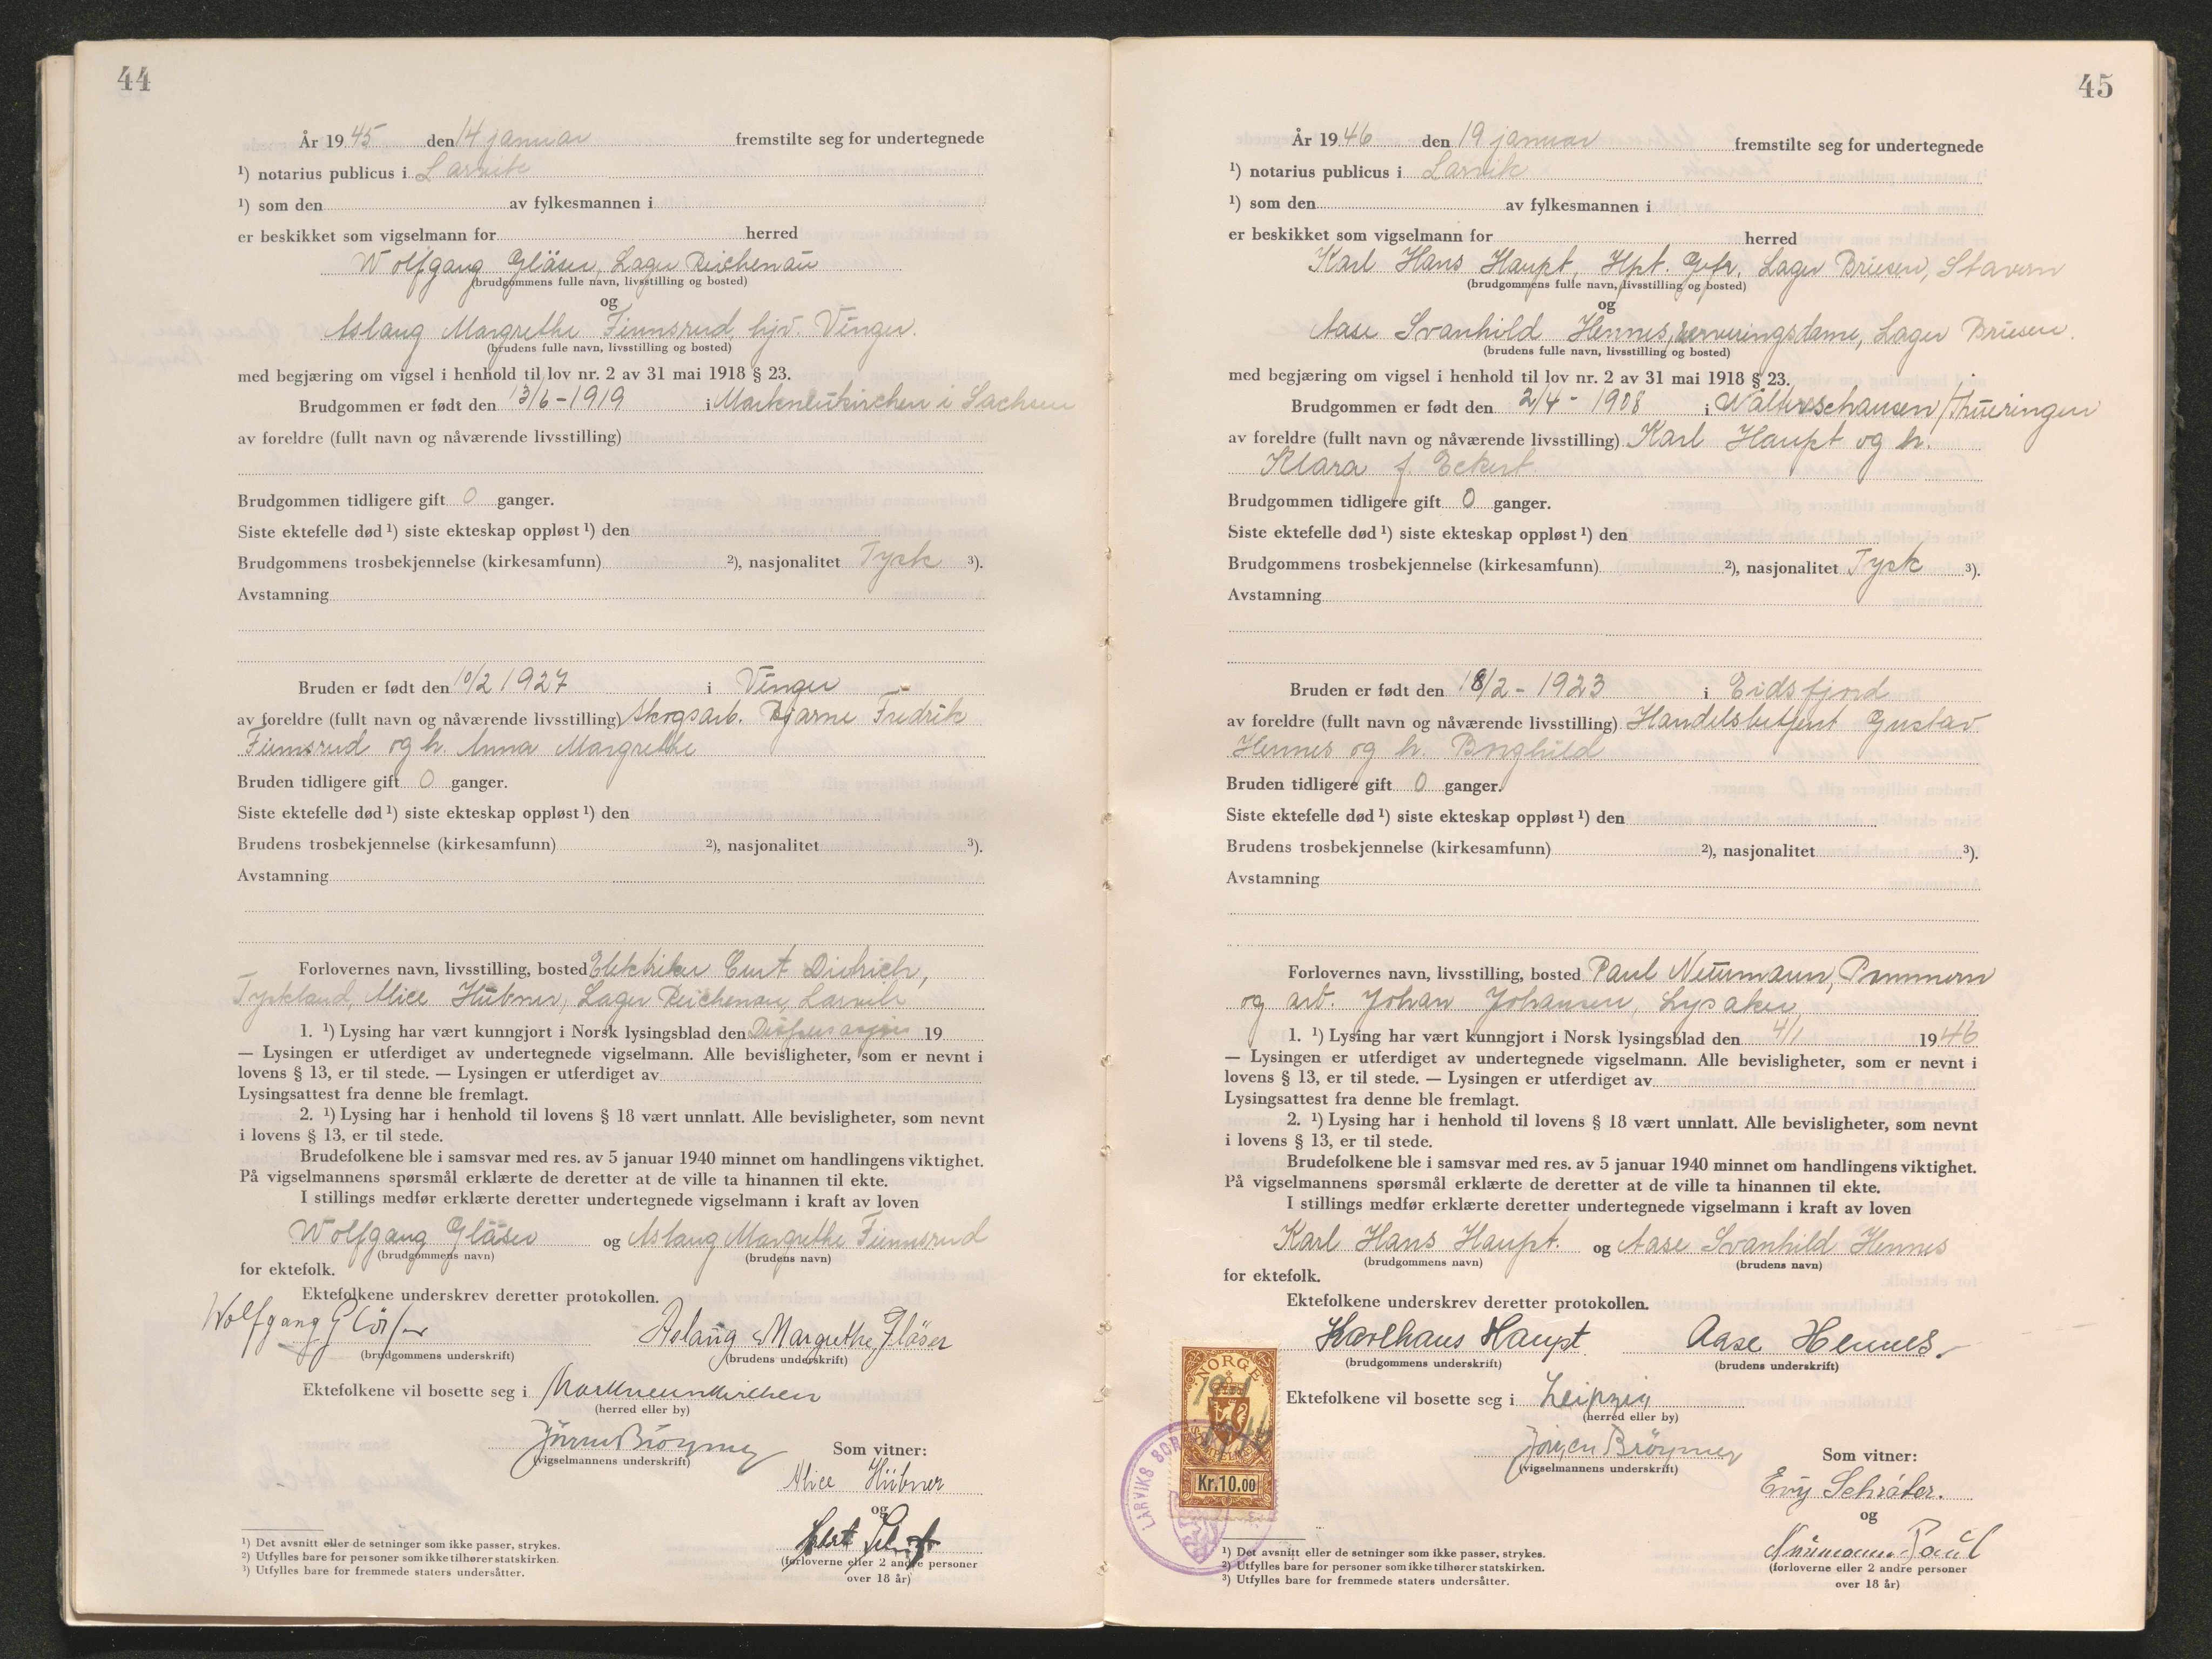 44
År 1945 den 14 januar fremstilte seg for undertegnede
¹) notarius publicus i Larvik
¹) som den av fylkesmannen i
er beskikket som vigselmann for herred
Wolfgang Gläser, Lager Reichenau
(brudgommens fulle navn, livsstilling og bosted)
og
Aslaug Margrethe Finnsrud, hjv. Vinger.
(brudens fulle navn, livsstilling og bosted)
med begjæring om vigsel i henhold til lov nr. 2 av 31 mai 1918 § 23.
Brudgommen er født den 13/6-1919 i Markneukirchen i Sachsen
av foreldre (fullt navn og nåværende livsstilling)
Brudgommen tidligere gift 0 ganger.
Siste ektefelle død ¹) siste ekteskap oppløst ¹) den
Brudgommens trosbekjennelse (kirkesamfunn) ²), nasjonalitet Tysk ³).
Avstamning
Bruden er født den 10/2 1927 i Vinger
av foreldre (fullt navn og nåværende livsstilling) Skogsarb. Bjarne Fredrik
Finnsrud og h. Anna Margrethe
Bruden tidligere gift 0 ganger.
Siste ektefelle død ¹) siste ekteskap oppløst ¹) den
Brudens trosbekjennelse (kirkesamfunn) ²), nasjonalitet ³).
Avstamning
Forlovernes navn, livsstilling, bosted Elektriker Curt Dietrich,
Tyskland, Alice Hübner, Lager Reichenau, Larvik
1. ¹) Lysing har vært kunngjort i Norsk lysingsblad den 19
— Lysingen er utferdiget av undertegnede vigselmann. Alle bevisligheter, som er nevnt i
lovens § 13, er til stede. — Lysingen er utferdiget av
Lysingsattest fra denne ble fremlagt.
2. ¹) Lysing har i henhold til lovens § 18 vært unnlatt. Alle bevisligheter, som nevnt
i lovens § 13, er til stede.
Brudefolkene ble i samsvar med res. av 5 januar 1940 minnet om handlingens viktighet.
På vigselmannens spørsmål erklærte de deretter at de ville ta hinannen til ekte.
I stillings medfør erklærte deretter undertegnede vigselmann i kraft av loven
Wolfgang Gläser og Aslaug Margrethe Finnsrud
(brudgommens navn) (brudens navn)
for ektefolk.
Ektefolkene underskrev deretter protokollen.
Wolfgang Gläser Aslaug Margrethe Gläser
(brudgommens underskrift) (brudens underskrift)
Ektefolkene vil bosette seg i Markneunkirchen
(herred eller by)
Jörgen Bröymer
(vigselmannens underskrift)
Som vitner:
Alice Hübner
og
(forloverne eller 2 andre personer
over 18 år)
¹) Det avsnitt eller de setninger som ikke passer, strykes.
²) Utfylles bare for personer som ikke tilhører statskirken.
³) Utfylles bare for fremmede staters undersåtter.
45
År 1946 den 19 januar fremstilte seg for undertegnede
¹) notarius publicus i Larvik
¹) som den av fylkesmannen i
er beskikket som vigselmann for herred
Karl Hans Haupt, Hpt. Gefr. Lager Briesen, Stavern
(brudgommens fulle navn, livsstilling og bosted)
og
Aase Svanhild Hennes, serveringsdame, Lager Briesen.
(brudens fulle navn, livsstilling og bosted)
med begjæring om vigsel i henhold til lov nr. 2 av 31 mai 1918 § 23.
Brudgommen er født den 2/4-1908 i Waltershausen/Thüeringen
av foreldre (fullt navn og nåværende livsstilling) Karl Haupt og h.
Klara f. Eckert
Brudgommen tidligere gift 0 ganger.
Siste ektefelle død ¹) siste ekteskap oppløst ¹) den
Brudgommens trosbekjennelse (kirkesamfunn) ²), nasjonalitet Tysk ³).
Avstamning
Bruden er født den 18/2-1923 i Eidsfjord
av foreldre (fullt navn og nåværende livsstilling) Handelsbetjent Gustav
Hennes og h. Borghild
Bruden tidligere gift 0 ganger.
Siste ektefelle død ¹) siste ekteskap oppløst ¹) den
Brudens trosbekjennelse (kirkesamfunn) ²), nasjonalitet ³).
Avstamning
Forlovernes navn, livsstilling, bosted Paul Neumann, Pommern
og arb. Johan Johansen, Lysaker,
1. ¹) Lysing har vært kunngjort i Norsk lysingsblad den 4/1 1946
— Lysingen er utferdiget av undertegnede vigselmann. Alle bevisligheter, som er nevnt i
lovens § 13, er til stede. — Lysingen er utferdiget av
Lysingsattest fra denne ble fremlagt.
2. ¹) Lysing har i henhold til lovens § 18 vært unnlatt. Alle bevisligheter, som nevnt
i lovens § 13, er til stede.
Brudefolkene ble i samsvar med res. av 5 januar 1940 minnet om handlingens viktighet.
På vigselmannens spørsmål erklærte de deretter at de ville ta hinannen til ekte.
I stillings medfør erklærte deretter undertegnede vigselmann i kraft av loven
Karl Hans Haupt. og Aase Svanhild Hennes
(brudgommens navn) (brudens navn)
for ektefolk.
Ektefolkene underskrev deretter protokollen.
Karlhans Haupt Aase Hennes.
(brudgommens underskrift) (brudens underskrift)
Ektefolkene vil bosette seg i Leipzig
(herred eller by)
Jörgen Bröymer
(vigselmannens underskrift)
Som vitner:
Evy Schrøter.
og
Neumann Paul
(forloverne eller 2 andre personer
over 18 år)
NORGE
Kr. 10.00
LARVIKS SOR
¹) Det avsnitt eller de setninger som ikke passer, strykes.
²) Utfylles bare for personer som ikke tilhører statskirken.
³) Utfylles bare for fremmede staters undersåtter.